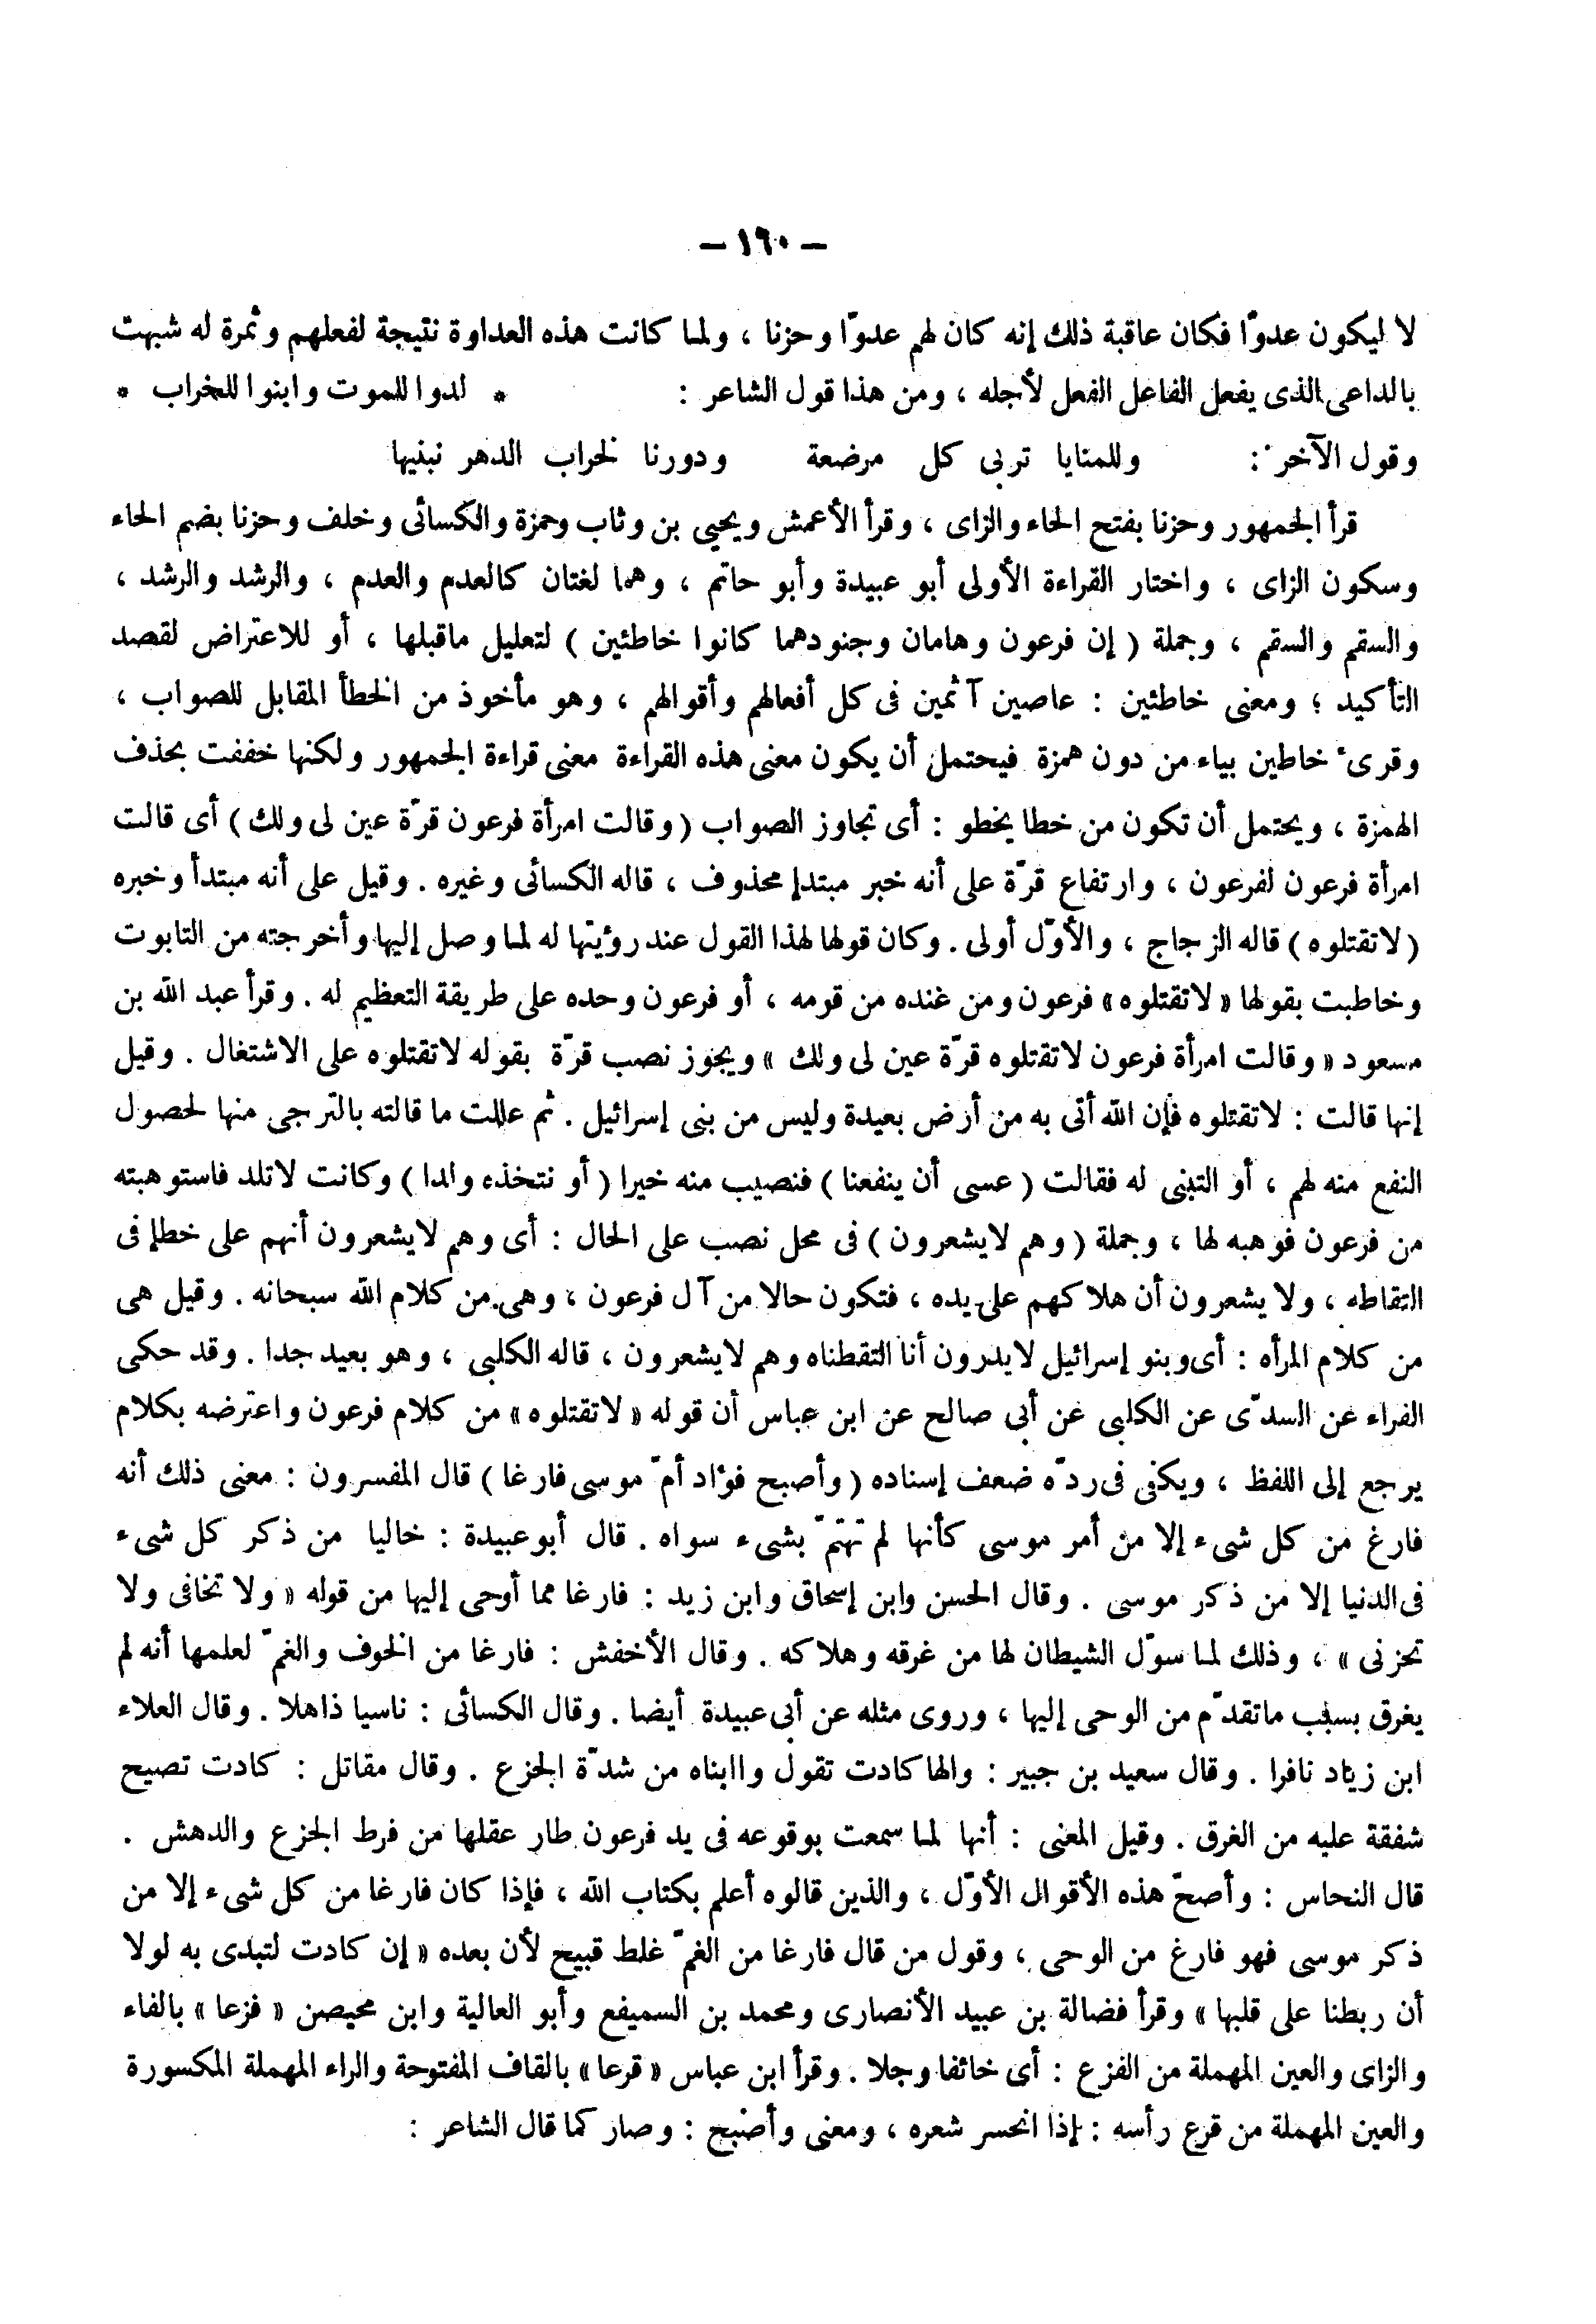 – ١٦٠ –
لا ليكون عدوّا فكان عاقبة ذلك إنه كان لهم عدوّا وحزنا ، ولما كانت هذه العداوة نتيجة لفعلهم وثمرة له شبهت
بالداعى الذى يفعل الفاعل الفعل لأجله ، ومن هذا قول الشاعر : * لدوا للموت وابنوا للخراب *
وقول الآخر : وللمنايا تربى كل مرضعة ودورنا لخراب الدهر نبنيها
قرأ الجمهور وحزنا بفتح الحاء والزاى ، وقرأ الأعمش ويحيى بن وثاب وحمزة والكسائى وخلف وحزنا بضم الحاء
وسكون الزاى ، واختار القراءة الأولى أبو عبيدة وأبو حاتم ، وهما لغتان كالعدم والعدم ، والرشد والرشد ،
والسقم والسقم ، وجملة ( إن فرعون وهامان وجنودهما كانوا خاطئين ) لتعليل ماقبلها ، أو للاعتراض لقصد
التأكيد ؛ ومعنى خاطئين : عاصين آثمين فى كل أفعالهم وأقوالهم ، وهو مأخوذ من الخطأ المقابل للصواب ،
وقرىء خاطين بياء من دون همزة فيحتمل أن يكون معنى هذه القراءة معنى قراءة الجمهور ولكنها خففت بحذف
الهمزة ، ويحتمل أن تكون من خطا يخطو : أى تجاوز الصواب ( وقالت امرأة فرعون قرّة عين لى ولك ) أى قالت
امرأة فرعون لفرعون ، وارتفاع قرّة على أنه خبر مبتدإ محذوف ، قاله الكسائى وغيره . وقيل على أنه مبتدأ وخبره
( لاتقتلوه ) قاله الزجاج ، والأوّل أولى . وكان قولها لهذا القول عند رؤيتها له لما وصل إليها وأخرجته من التابوت
وخاطبت بقولها « لاتقتلوه » فرعون ومن عنده من قومه ، أو فرعون وحده على طريقة التعظيم له . وقرأ عبد الله بن
مسعود « وقالت امرأة فرعون لاتقتلوه قرّة عين لى ولك » ويجوز نصب قرّة بقوله لاتقتلوه على الاشتغال . وقيل
إنها قالت : لاتقتلوه فإن الله أتى به من أرض بعيدة وليس من بنى إسرائيل . ثم عللت ما قالته بالترجى منها لحصول
النفع منه لهم ، أو التبنى له فقالت ( عسى أن ينفعنا ) فنصيب منه خيرا ( أو نتخذه ولدا ) وكانت لاتلد فاستوهبته
من فرعون فوهبه لها ، وجملة ( وهم لايشعرون ) فى محل نصب على الحال : أى وهم لايشعرون أنهم على خطإ فى
التقاطه ، ولا يشعرون أن هلاكهم على يده ، فتكون حالا من آل فرعون ، وهى من كلام الله سبحانه . وقيل هى
من كلام المرأه : أى وبنو إسرائيل لايدرون أنا التقطناه وهم لايشعرون ، قاله الكلبى ، وهو بعيد جدا . وقد حكى
الفراء عن السدّى عن الكلبى عن أبى صالح عن ابن عباس أن قوله « لاتقتلوه » من كلام فرعون واعترضه بكلام
يرجع إلى اللفظ ، ويكفى فى ردّه ضعف إسناده ( وأصبح فؤاد أمّ موسى فارغا ) قال المفسرون : معنى ذلك أنه
فارغ من كل شىء إلا من أمر موسى كأنها لم تهتمّ بشىء سواه . قال أبو عبيدة : خاليا من ذكر كل شىء
فى الدنيا إلا من ذكر موسى . وقال الحسن وابن إسحاق وابن زيد : فارغا مما أوحى إليها من قوله « ولا تخافى ولا
تحزنى » ، وذلك لما سوّل الشيطان لها من غرقه وهلاكه . وقال الأخفش : فارغا من الخوف والغمّ لعلمها أنه لم
يغرق بسبب ماتقدّم من الوحى إليها ، وروى مثله عن أبى عبيدة أيضا . وقال الكسائى : ناسيا ذاهلا . وقال العلاء
ابن زياد نافرا . وقال سعيد بن جبير : والها كادت تقول واابناه من شدّة الجزع . وقال مقاتل : كادت تصيح
شفقة عليه من الغرق . وقيل المعنى : أنها لما سمعت بوقوعه فى يد فرعون طار عقلها من فرط الجزع والدهش .
قال النحاس : وأصحّ هذه الأقوال الأوّل ، والذين قالوه أعلم بكتاب الله ، فإذا كان فارغا من كل شىء إلا من
ذكر موسى فهو فارغ من الوحى ، وقول من قال فارغا من الغمّ غلط قبيح لأن بعده « إن كادت لتبدى به لولا
أن ربطنا على قلبها » وقرأ فضالة بن عبيد الأنصارى ومحمد بن السميفع وأبو العالية وابن محيصن « فزعا » بالفاء
والزاى والعين المهملة من الفزع : أى خائفا وجلا . وقرأ ابن عباس « قرعا » بالقاف المفتوحة والراء المهملة المكسورة
والعين المهملة من قرع رأسه : إذا انحسر شعره ، ومعنى وأصبح : وصار كما قال الشاعر :